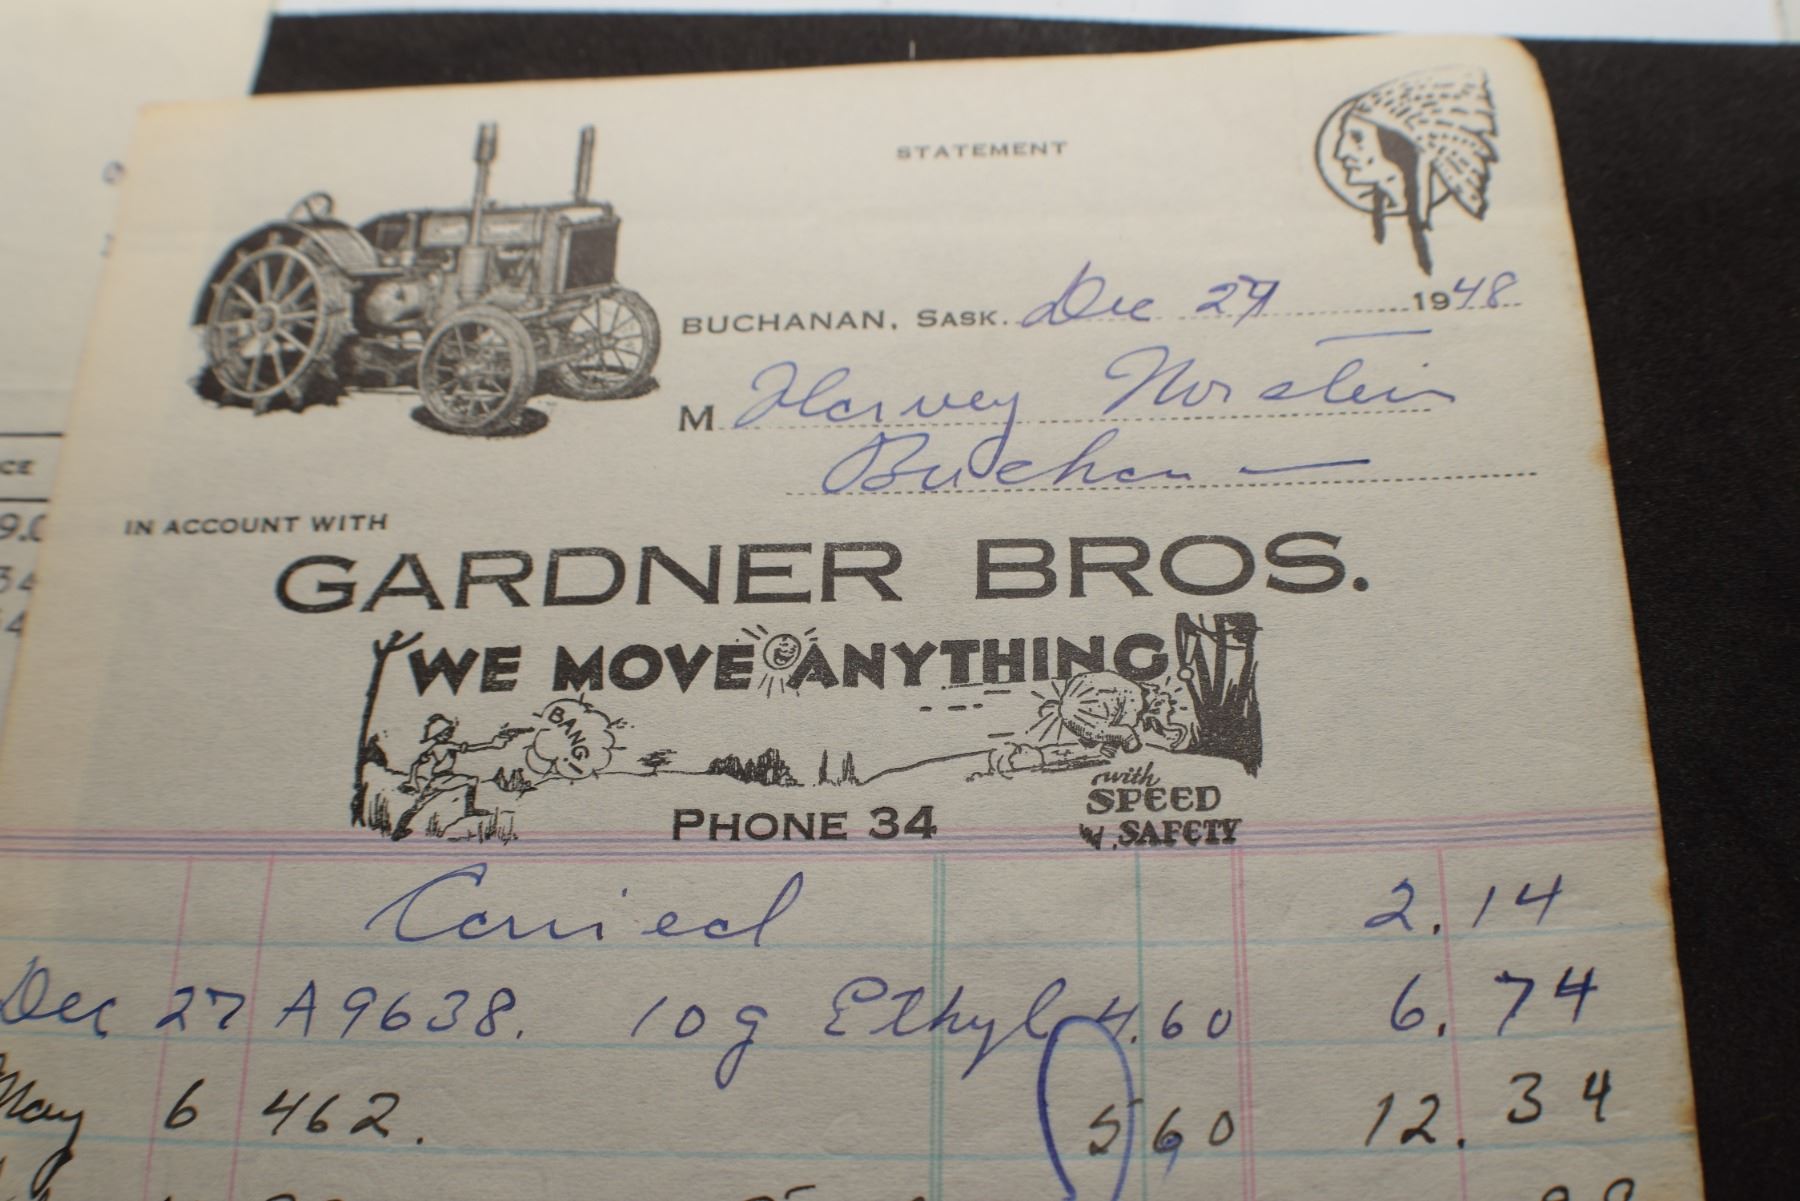 STATEMENT
BUCHANAN, SASK. Dec 27 1948
M Harvey Norstein
Buchan
IN ACCOUNT WITH
GARDNER BROS.
WE MOVE ANYTHING
BANG!
with
SPEED
SAFETY
PHONE 34
Carried 2.14
Dec 27 A9638. 10g Ethyl 4.60 6.74
May 6 462. 5 60 12.34
CE
9.0
34
4